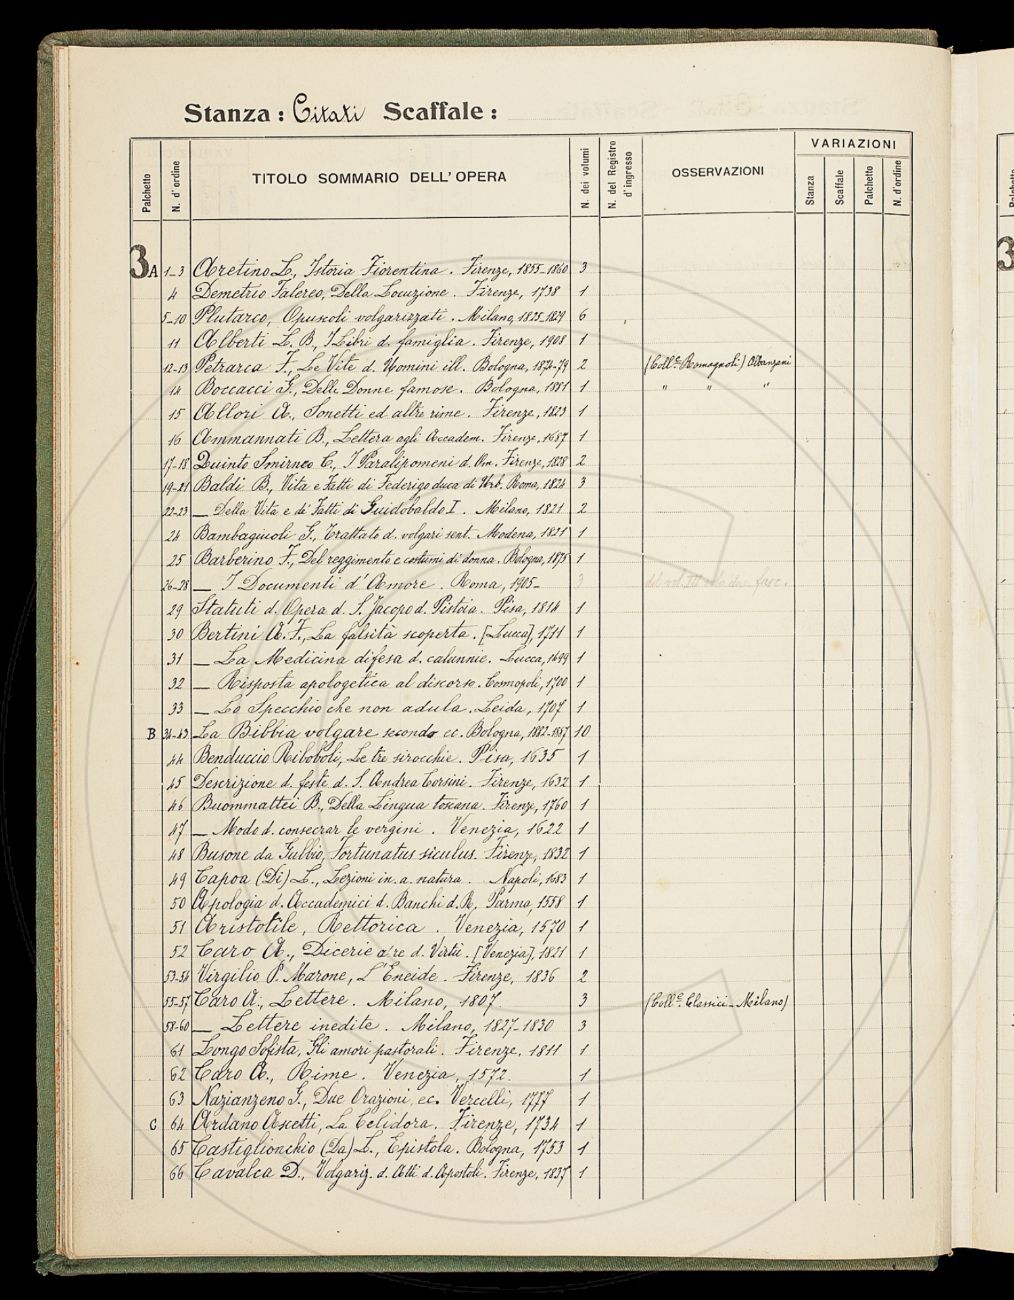 Stanza : Citati Scaffale :
Palchetto N. d'ordine TITOLO SOMMARIO DELL'OPERA N. dei volumi N. del Registro d'ingresso OSSERVAZIONI VARIAZIONI
Stanza Scaffale Palchetto N. d'ordine
3 A 1-3 Aretino L., Istoria Fiorentina. Firenze, 1855-1860 3
4 Demetrio Falereo, Della Locuzione. Firenze, 1738 1
5-10 Plutarco, Opuscoli volgarizzati. Milano, 1825-1829 6
11 Alberti L. B., I Libri d. famiglia. Firenze, 1908 1
12-13 Petrarca F., Le Vite d. Uomini ill. Bologna, 1874-79 2 (Coll.e Romagnoli)
14 Boccacci G., Delle Donne famose. Bologna, 1881 1 " " "
15 Allori A., Sonetti ed altre rime. Firenze, 1823 1
16 Ammannati B., Lettera agli Accadem. Firenze, 1687 1
17-18 Quinto Smirneo C., I Paralipomeni d. Om. Firenze, 1828 2
19-21 Baldi B., Vita e Fatti di Federigo duca di Urb. Roma, 1824 3
22-23 — Della Vita e di Fatti di Guidobaldo I. Milano, 1821 2
24 Bambagiuoli G., Trattato d. volgari sent. Modena, 1821 1
25 Barberino F., Del reggimento e costumi di donna. Bologna, 1875 1
26-28 — I Documenti d'Amore. Roma, 1905- 3 del vol. III solo due fasc.
29 Statuti d. Opera d. S. Jacopo d. Pistoia. Pisa, 1814 1
30 Bertini A. F., La falsità scoperta. [Lucca], 1711 1
31 — La Medicina difesa d. calunnie. Lucca, 1699 1
32 — Risposta apologetica al discorso. Cosmopoli, 1700 1
33 — Lo Specchio che non adula. Leida, 1707 1
B 34-43 La Bibbia volgare secondo ec. Bologna, 1882-1887 10
44 Benduccio Riboboli, Le tre sirocchie. Pisa, 1635 1
45 Descrizione d. feste d. S. Andrea Corsini. Firenze, 1632 1
46 Buommattei B., Della Lingua toscana. Firenze, 1760 1
47 — Modo d. consecrar le vergini. Venezia, 1622 1
48 Busone da Gubbio, Fortunatus siculus. Firenze, 1832 1
49 Capoa (Di) L., Lezioni in. a. natura. Napoli, 1683 1
50 Apologia d. Accademici d. Banchi d. R., Parma, 1558 1
51 Aristotile, Rettorica. Venezia, 1570 1
52 Caro A., Dicerie d. re d. Virtù. [Venezia], 1821 1
53-54 Virgilio P. Marone, L'Eneide. Firenze, 1836 2
55-57 Caro A., Lettere. Milano, 1807 3 (Coll.e Classici - Milano)
58-60 — Lettere inedite. Milano, 1827-1830 3
61 Longo Sofista, Gli amori pastorali. Firenze, 1811 1
62 Caro A., Rime. Venezia, 1572. 1
63 Nazianzeno G., Due Orazioni, ec. Vercelli, 1777 1
C 64 Ardano Ascetti, La Celidora. Firenze, 1734 1
65 Castiglionchio (Da) L., Epistola. Bologna, 1753 1
66 Cavalca D., Volgariz. d. Atti d. Apostoli. Firenze, 1837 1